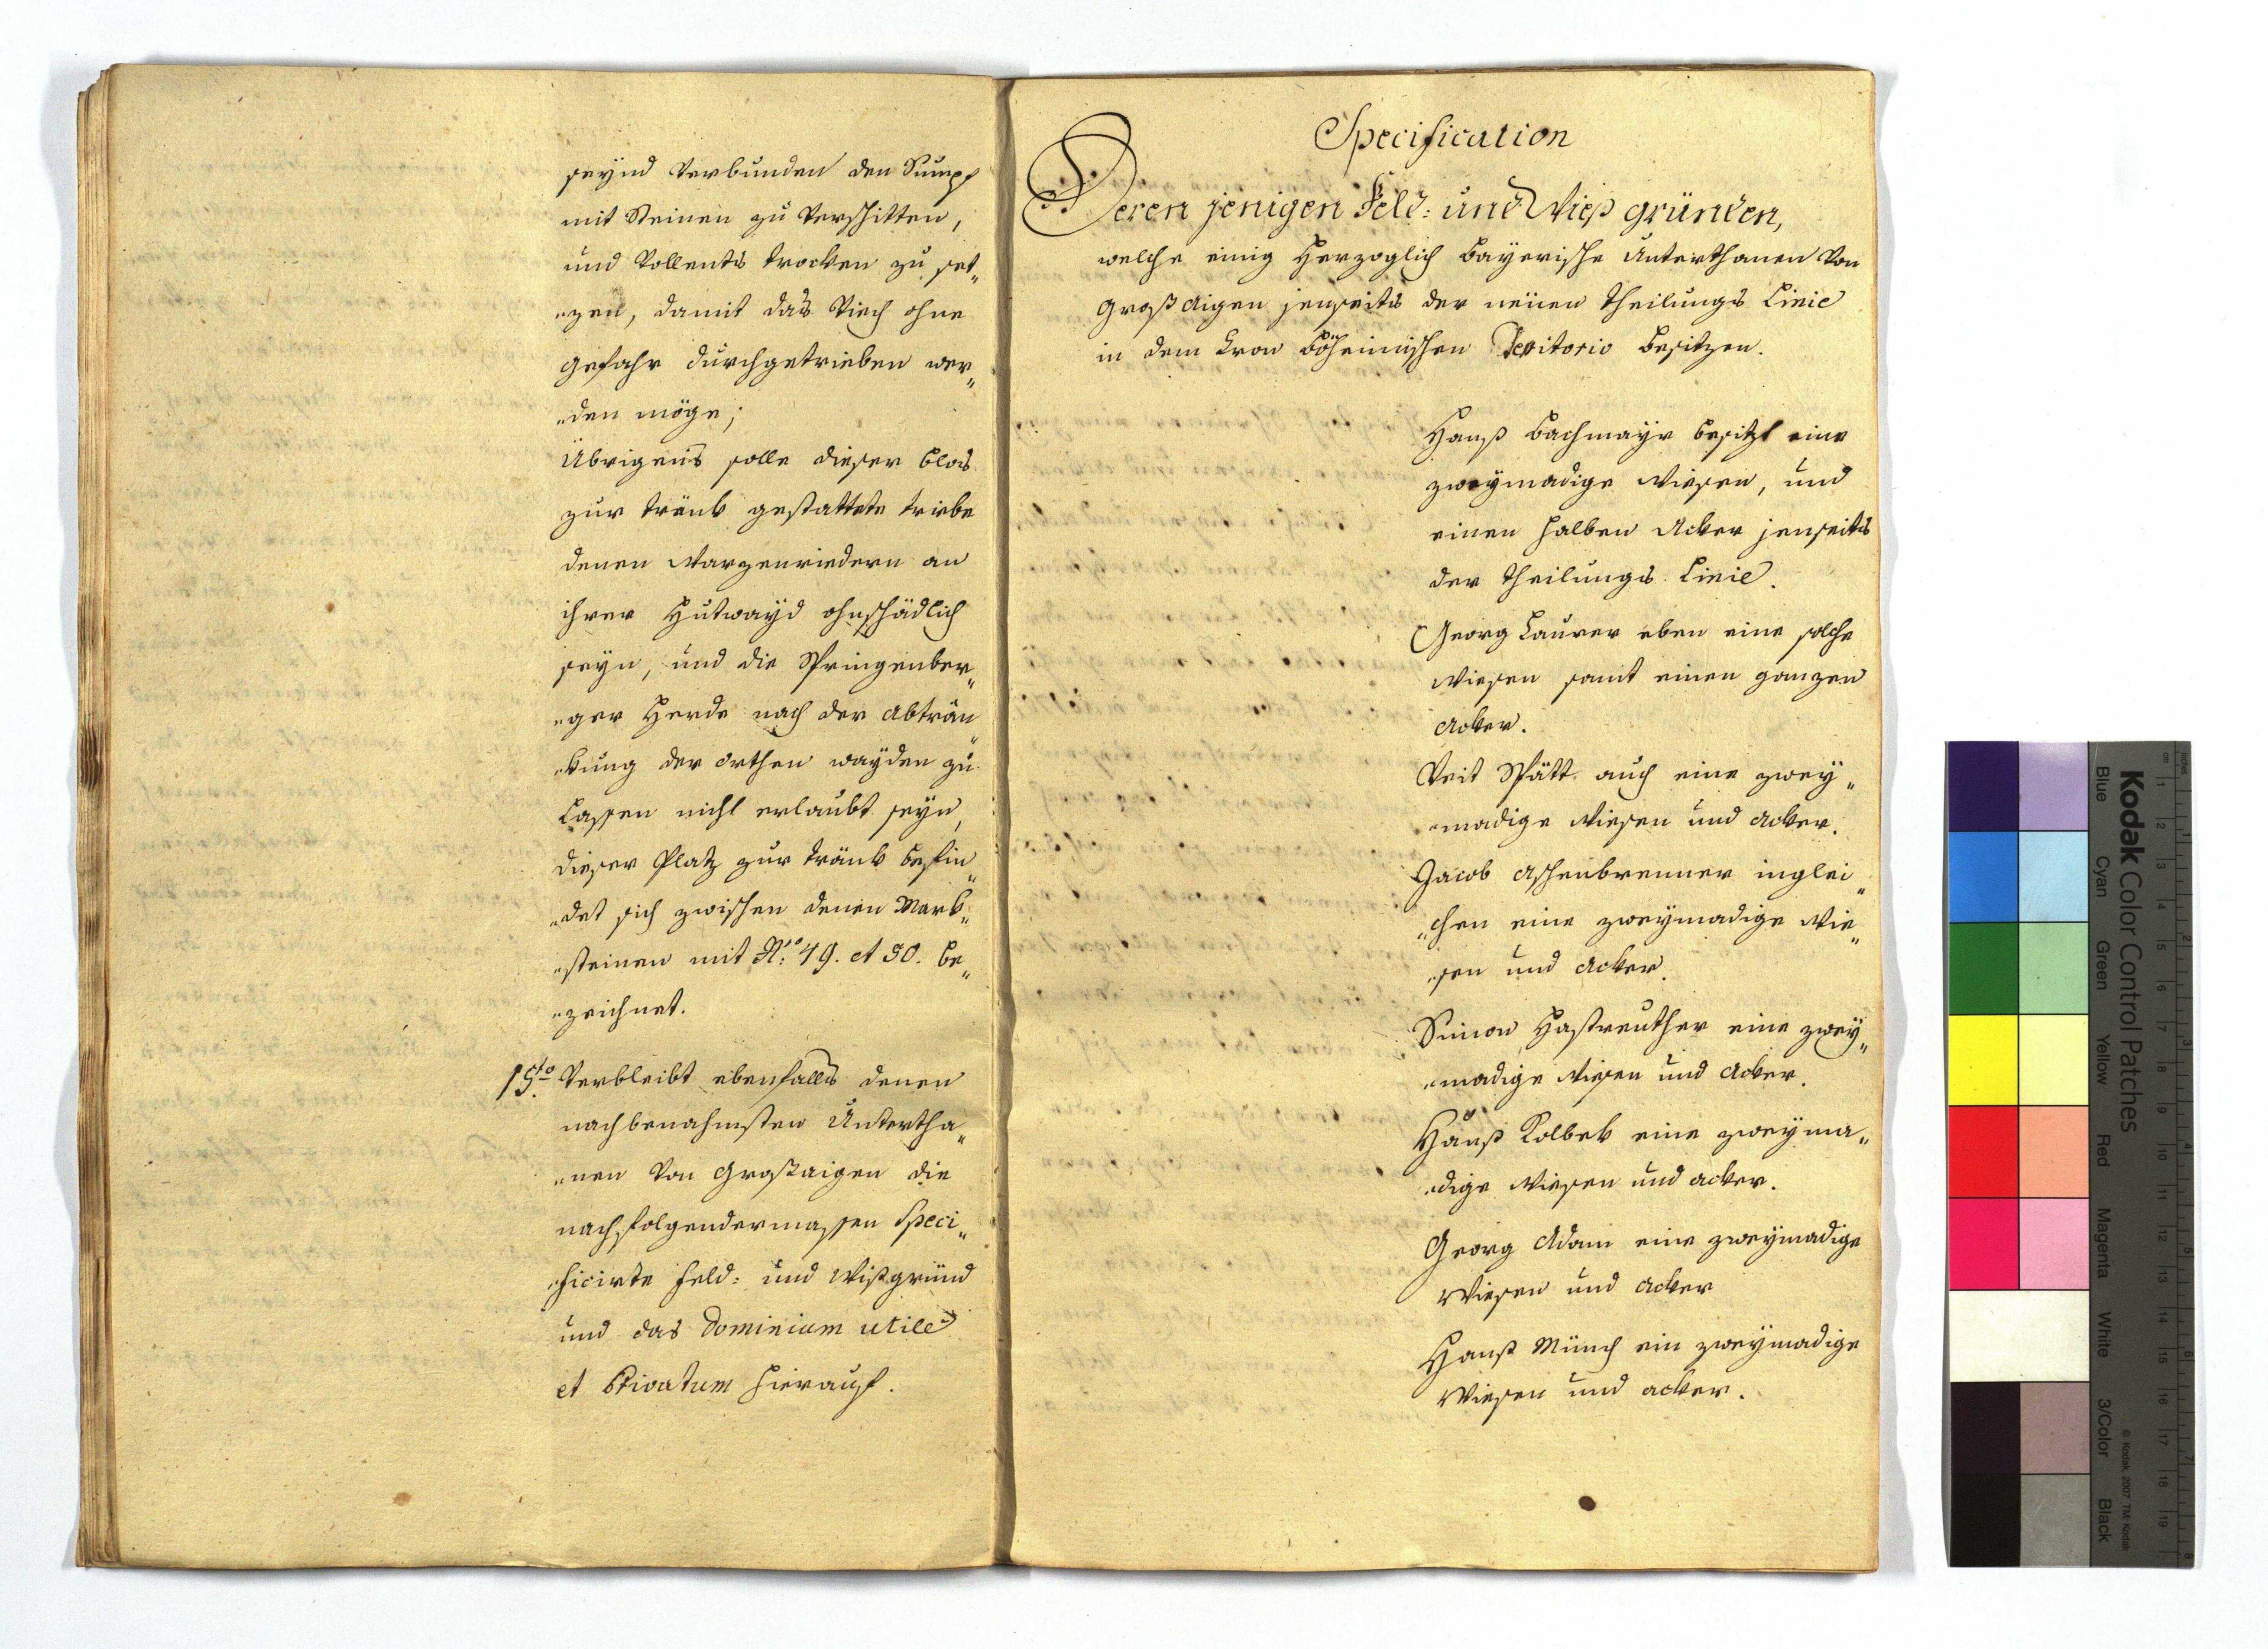 seynd verbunden den Sumpf
mit Steinen zu verschitten,
und vollents trocken zu set„
„zen, damit das Viech ohne
gefahr durchgetrieben wer„
„den möge;
Übrigens solle dieser blos
zur tränk gestattete triebe
denen Warzenriedern an
ihrer Hutwayd ohnschädlich
seyn, und die Springenber„
„ger Herde nach der abträn„
„kung der orthen wayden zu
lassen nicht erlaubt seyn,
dieser Platz zur tränk befin„
„det sich zwischen denen Mark„
„steinen mit N:ro 49. et 50. be„
„zeichnet.
15.to Verbleibt ebenfalls denen
nachbenahmsten Untertha„
„nen von Großaigen die
nachfolgendermassen Speci„
„ficirte feld: und Wißgründ
und das Dominium utile
et Privatum hierauf.
Specification
Deren jenigen Feld: und Wieß gründen,
welche einig Herzoglich Bayerische Unterthanen von
Großaigen jenseits der neüen Theilungs Linie
in dem Cron Böheimischen Territorio besitzen.
Hanß Bachmayr besitzt eine
zweymadige Wiesen, und
einen halben Acker jenseits
der Theilungs Linie.
Georg Laurer eben eine solche
Wiesen samt einen ganzen
Acker.
Veit Spätt auch eine zwey„
„madige Wiesen und Acker.
Jacob Aschenbrenner inglei„
„chen eine zweymadige Wie„
„sen und Acker.
Simon Hastreuther eine zwey„
„madige Wiesen und Acker.
Hanß Kolbek eine zweyma„
„dige Wiesen und acker.
Georg Adam eine zweymadige
Wiesen und Acker
Hanß Münch ein zweymadige
Wiesen und acker.
Kodak Color Control Patches
Blue Cyan Green Yellow Red Magenta White 3/Color Black
© Kodak, 2007 TM: Kodak
inches 1 2 3 4 5 6 7 8
cm 1 2 3 4 5 6 7 8 9 10 11 12 13 14 15 16 17 18 19